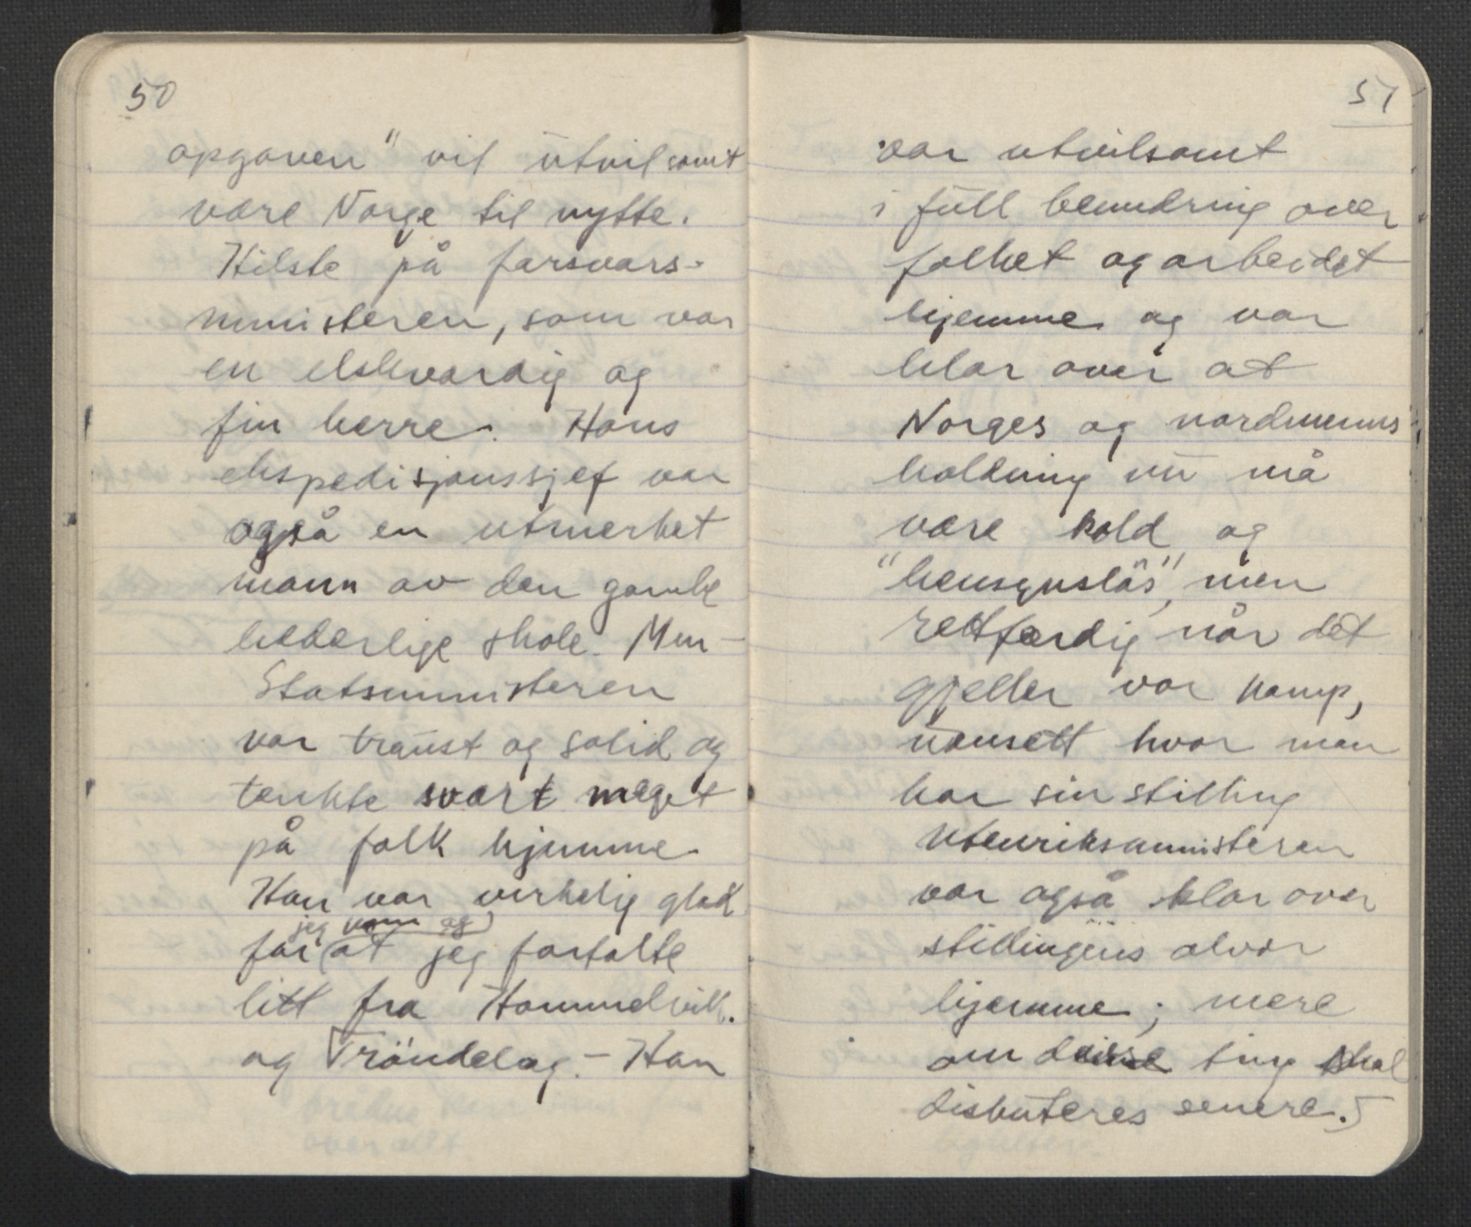 50
opgaven" vil utvilsomt
være Norge til nytte.
Hilste på forsvars-
ministeren, som var
en elskverdig og
fin herre. Hans
ekspedisjonssjef var
også en utmerket
mann av den gamle
hederlige skole. Men -
Statsministeren
var traust og solid og
tenkte svært meget
på folk hjemme
Han var virkelig glad
jeg kom og
for at jeg fortalte
litt fra Hommelvik.
og Tröndelag. - Han
51
var utvilsomt
i full beundring over
folket og arbeidet
hjemme og var
klar over at
Norges og nordmenns
holdning nu må
være kold og
"hensynslös", men
rettferdig når det
gjelder vor kamp,
uansett hvor man
har sin stilling
Utenriksministeren
var også klar over
stillingens alvor
hjemme; mere
om disse ting skal
diskuteres senere.